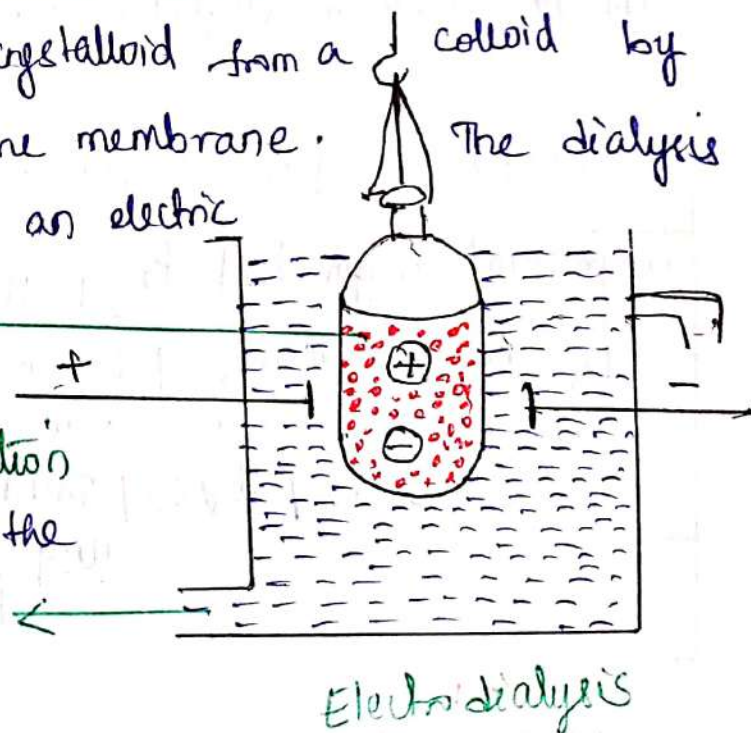 crystalloid from a colloid by
ne membrane. The dialysis
an electric
+
+
−
−
tion
the
Electrodialysis